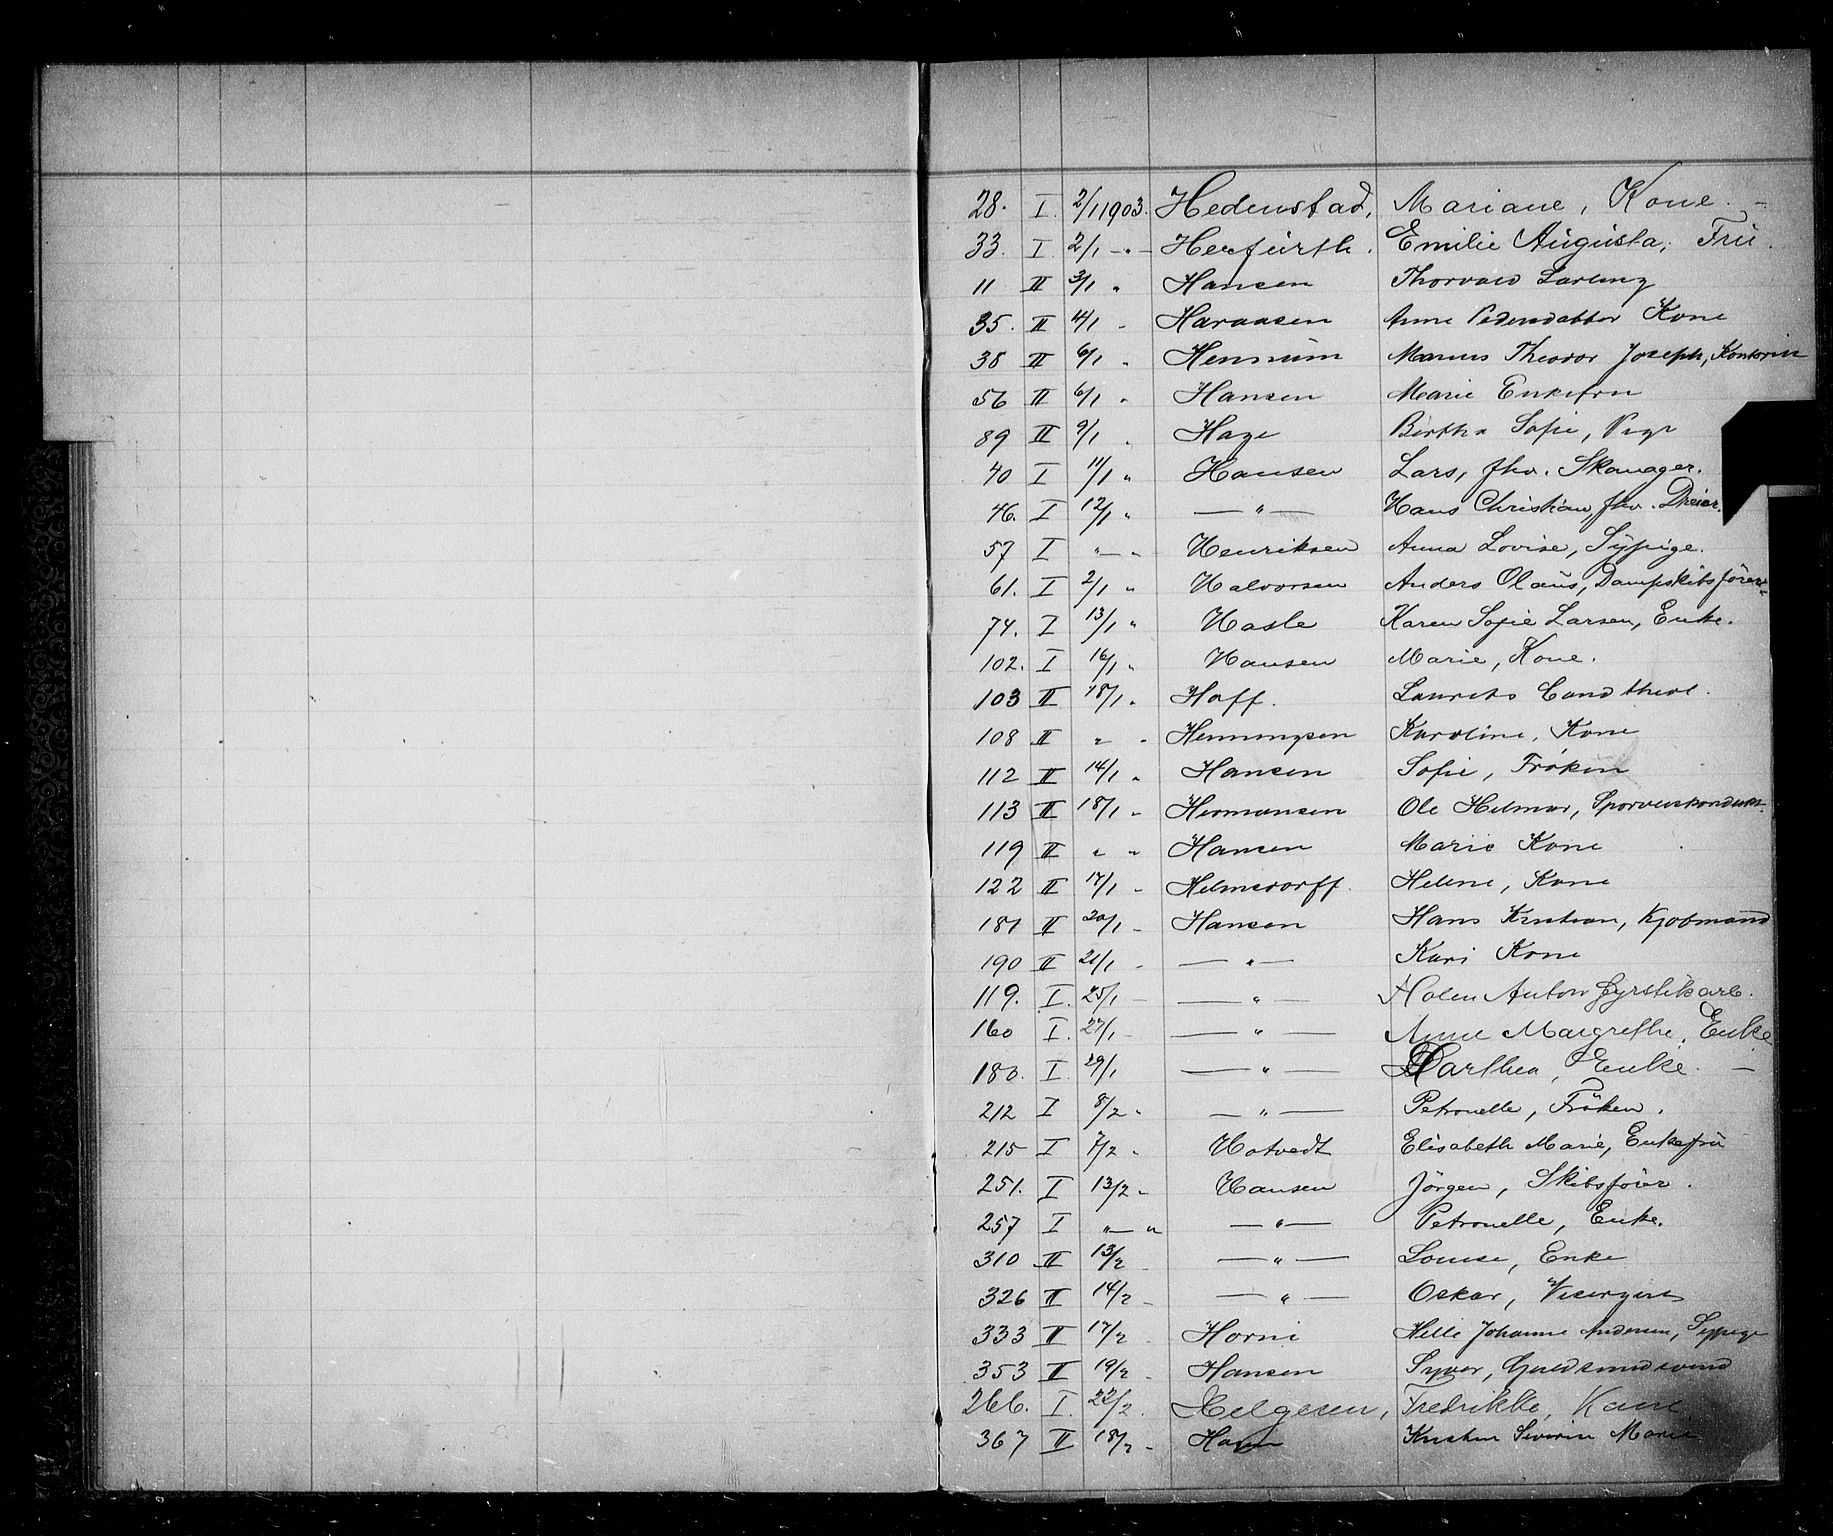 28. I. 2/1 1903. Hedenstad, Mariane, Kone. -
33. I. 2/1 -"- Herfürth. Emilie Augusta, Fru.
11 II 3/1 " Hansen Thorvald Lærling
35. II 4/1 - Haraasen Anne Pedersdatter Kone
38 II 6/1 " Hennum Marius Theodor Joseph, Kontorist
56 II 6/1 " Hansen Marie Enkefru
89 II 9/1 " Hage Bertha Sofie, Pige
40 I 11/1 " Hansen Lars, fhv. Skomager.
46. I 12/1 " —"— Hans Christian, fhv. Dreier.
57 I "—" Henriksen Anna Lovise, Sypige.
61. I 2/1 " Halvorsen Anders Olaus, Dampskibsfører
74. I 13/1 " Hasle Karen Sofie Larsen, Enke.
102. I 16/1 " Hansen Marie, Kone.
103 II 18/1 " Hoff. Laurits Cand theol.
108 II " " Henningsen Karoline, Kone
112 II 14/1 " Hansen Sofie, Frøken
113 II 18/1 " Hermansen Ole Hilmar, Sporveiskonduktør
119 II " " Hansen Marie Kone
122 II 17/1 - Helmsdorff. Helene, Kone
181 II 20/1 - Hansen Hans Kristian, Kjøbmand
190 II 21/1 - —"— Kari Kone
119. I. 25/1 — —"— Anton Fyrstikarb.
160 I. 27/1 - —"— Anne Margrethe, Enke
180. I. 29/1 —"— Marthea, Enke. —
212 I 8/2 " —"— Petronelle, Frøken.
215 I 7/2 " Hotvedt Elisabeth Marie, Enkefru
251. I 13/2 " Hansen Jørgen, Skibsfører.
257 I "—" —"— Petronelle, Enke.
310 II 13/2 - —"— Louise, Enke
326 II 14/2 - —"— Oskar, Visergut
333 II 17/2 - Horni Helle Johanne Andersen, Sypige
353 II 19/2 - Hansen Syver, Guldsmedsvend
266. I. 22/2. Helgesen, Fredrikke, Kone
367 II 18/2 - Severin Marie